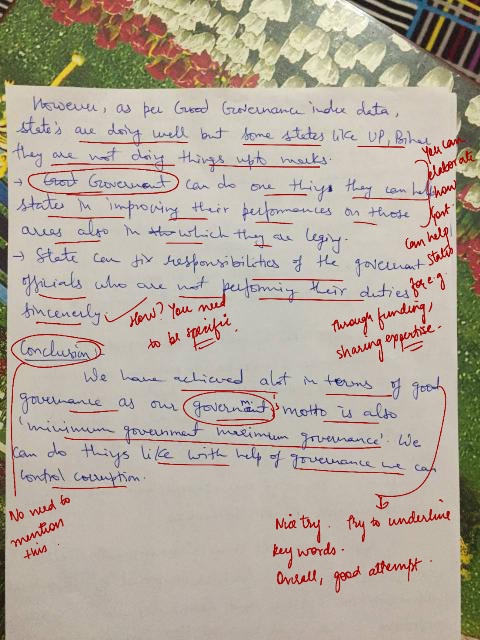 However, as per Good Governance index data,
state's are doing well but some states like UP, Bihar
they are not doing things upto marks.
→ Good Government can do one things they can help
states in improving their performances on those
areas also in which they are leging.
→ State can fix responsibilities of the goverment
officials who are not performing their duties
sincenerly.
You can
elaborate
how
govt.
can help
states
for e.g
through funding,
sharing expertise.
How? You need
to be specific.
Conclusion:
We have achieved alot in terms of good
governance as our government's motto is also
'minimum government maximum governance'. We
can do things like with help of governance we can
control corruption.
No need to
mention
this.
Nice try. Try to underline
key words.
Overall, good attempt.